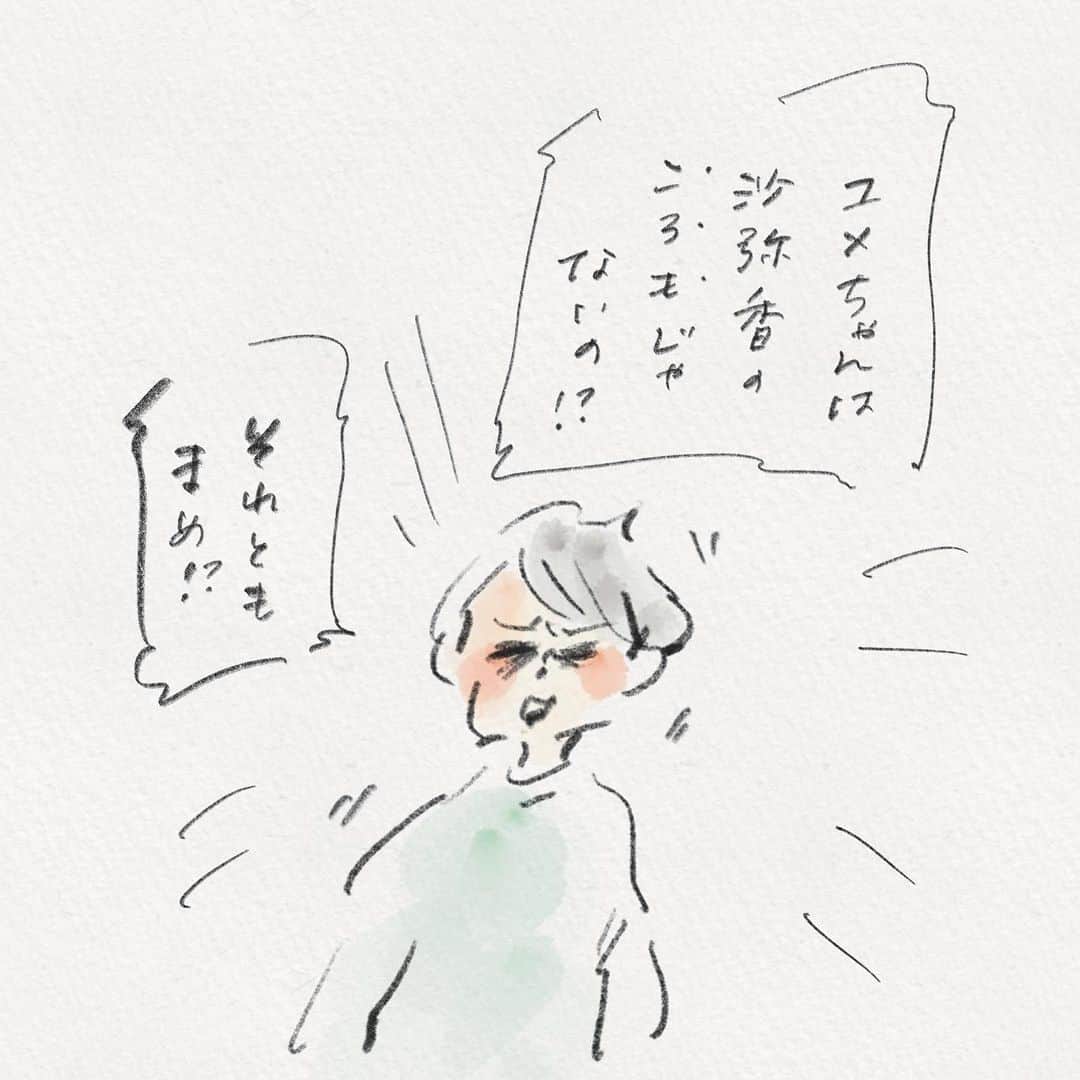 ユメちゃんは
沙弥香の
ころもじゃ
ないの!?
それとも
まめ!?